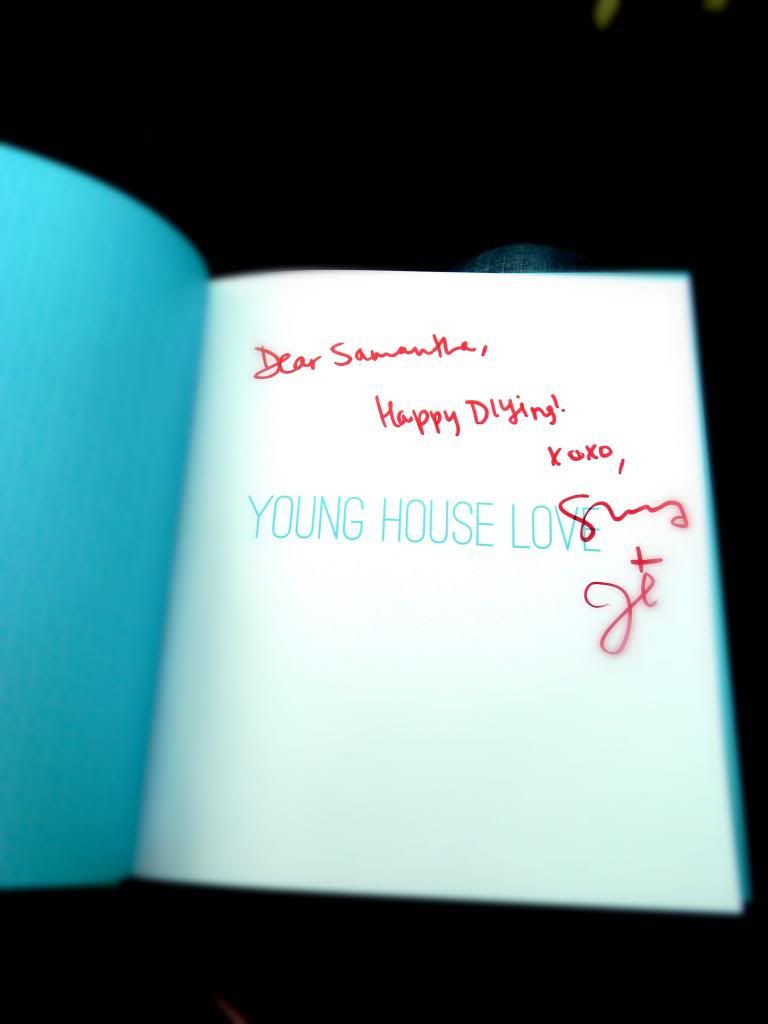 Dear Samantha,
Happy DIYing!
xoxo,
YOUNG HOUSE LOVE
+